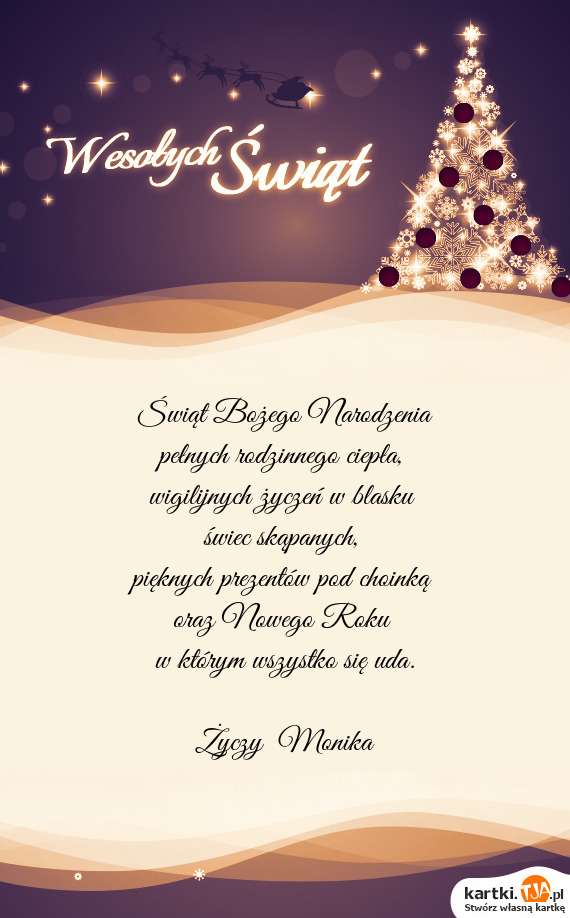 Wesołych Świąt
Świąt Bożego Narodzenia
pełnych rodzinnego ciepła,
wigilijnych życzeń w blasku
świec skąpanych,
pięknych prezentów pod choinką
oraz Nowego Roku
w którym wszystko się uda.
Życzy Monika
kartki.TJA.pl
Stwórz własną kartkę